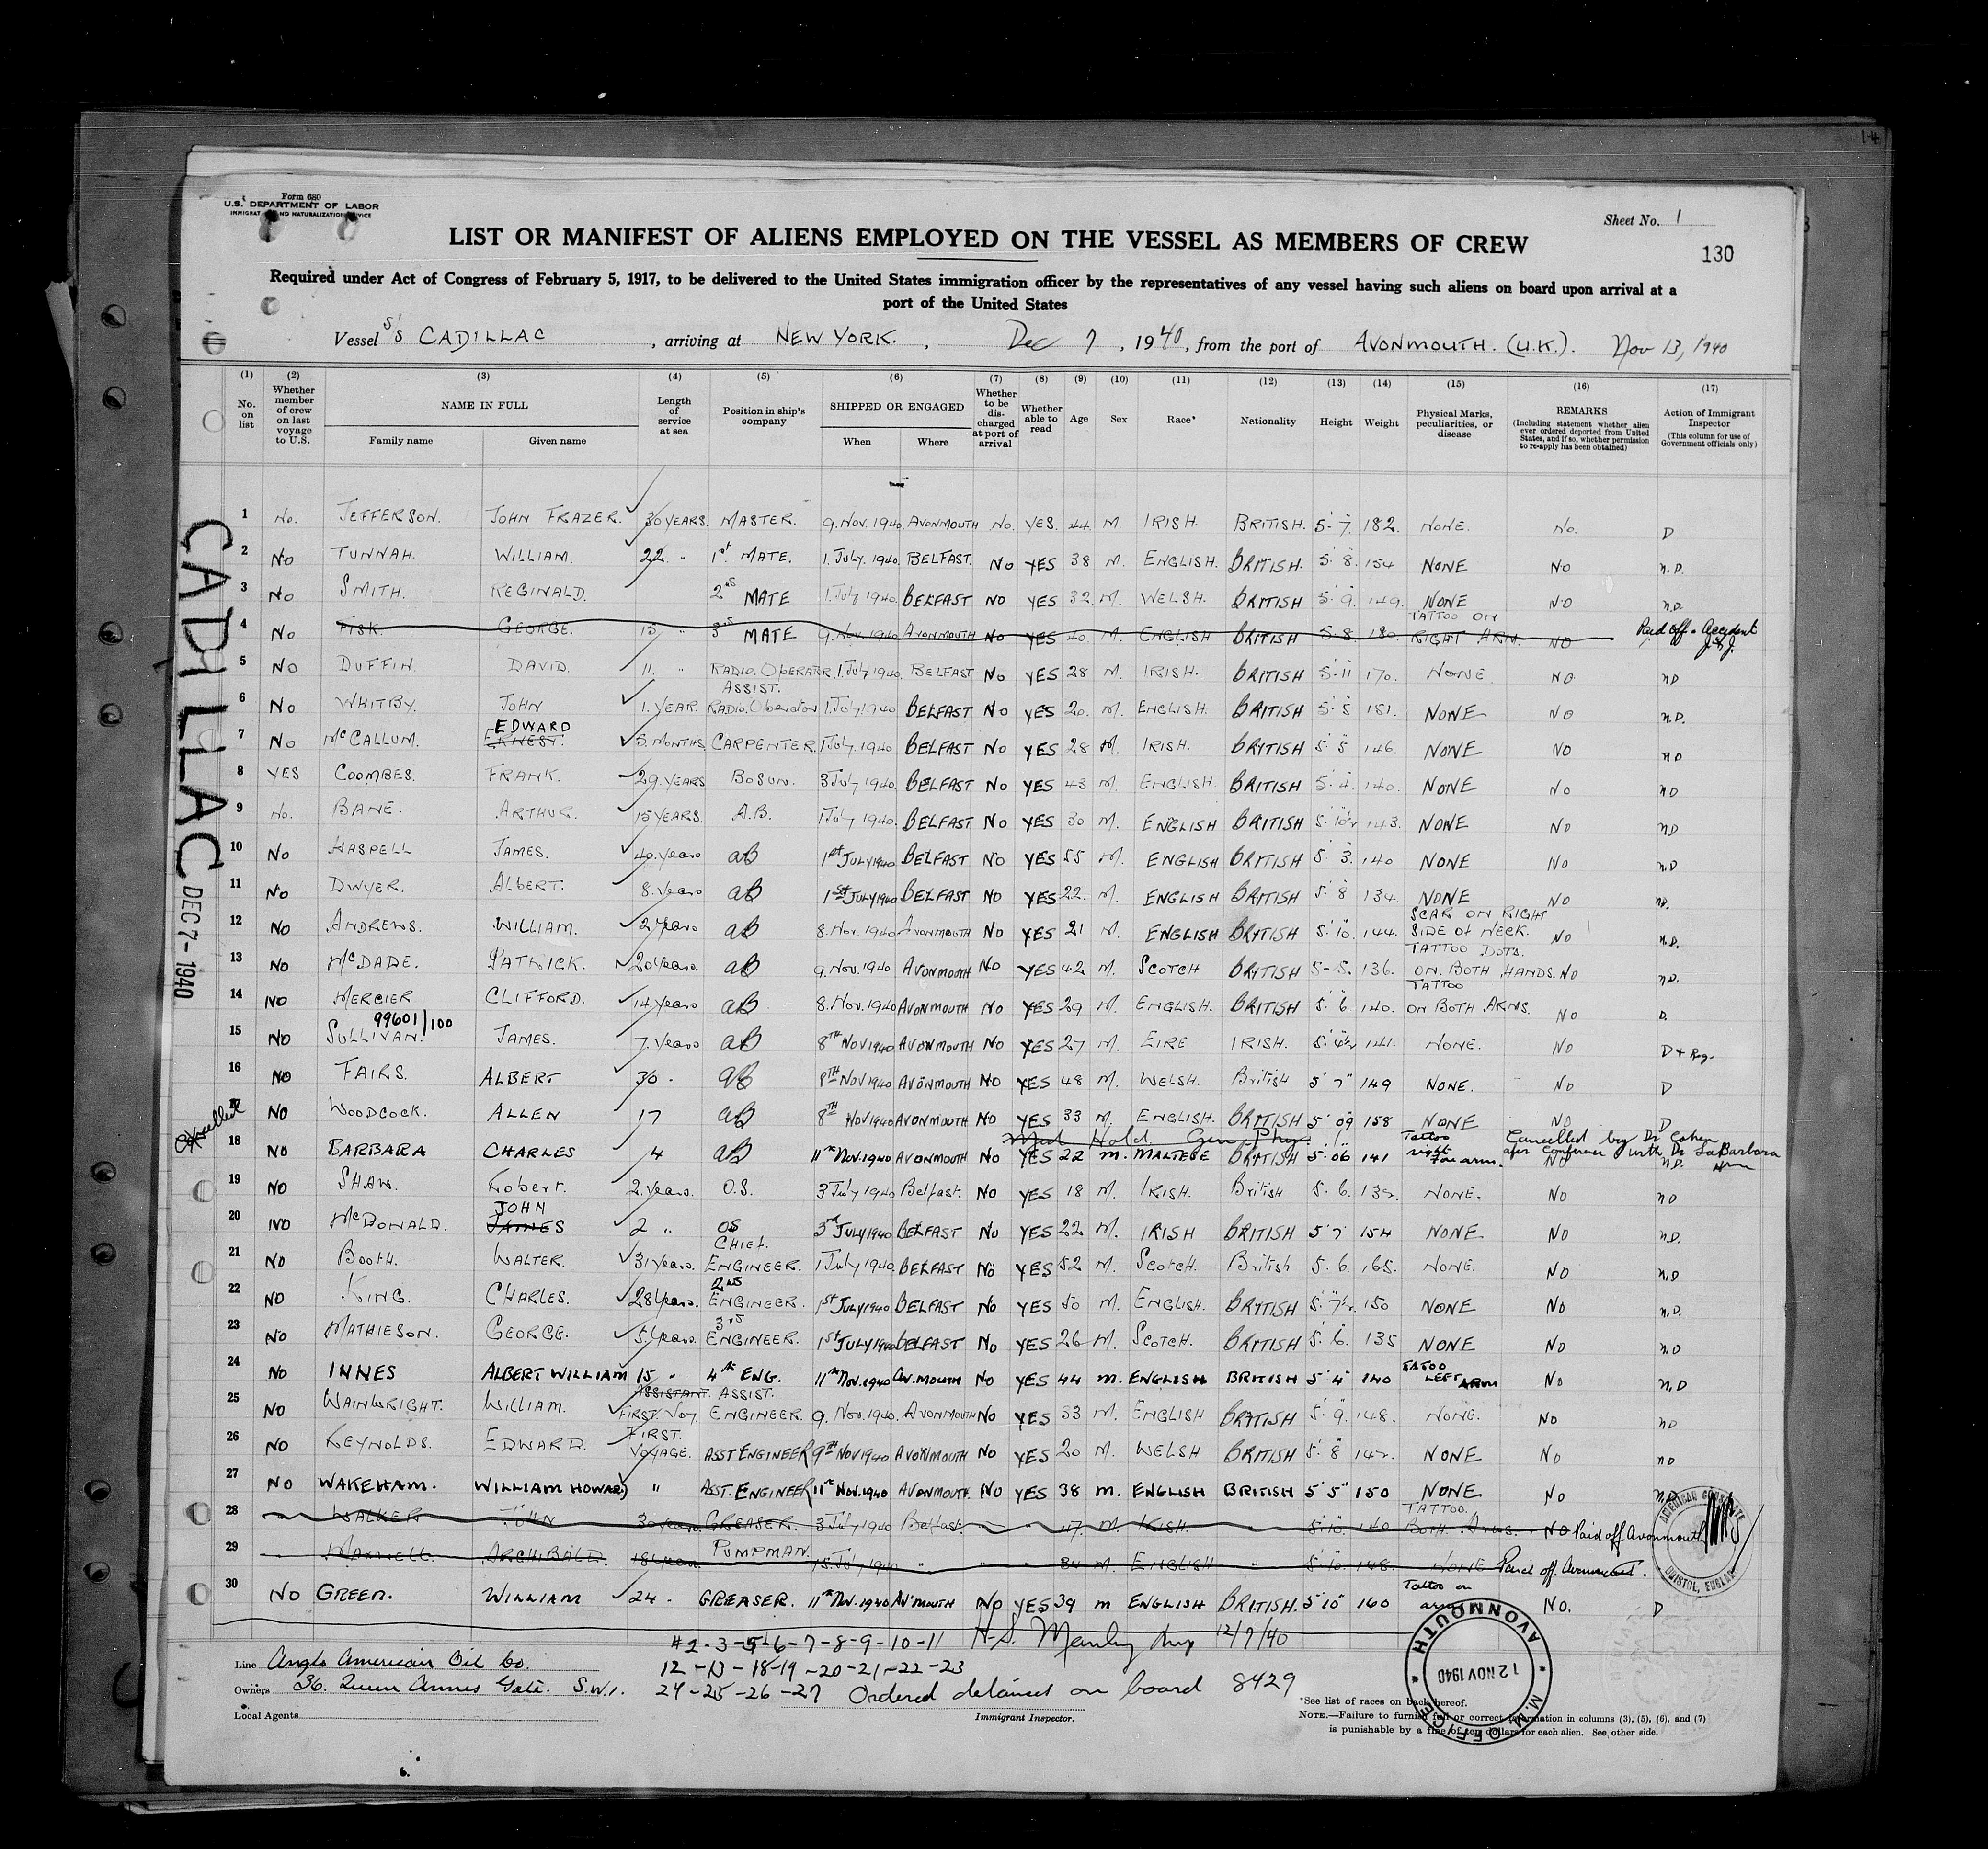 14
Form 680
U.S. DEPARTMENT OF LABOR
IMMIGRAT AND NATURALIZATION VICE
Sheet No. 1
LIST OR MANIFEST OF ALIENS EMPLOYED ON THE VESSEL AS MEMBERS OF CREW
130
Required under Act of Congress of February 5, 1917, to be delivered to the United States immigration officer by the representatives of any vessel having such aliens on board upon arrival at a
port of the United States
Vessel S'S CADILLAC, arriving at NEW YORK., Dec 7, 1940, from the port of AVONMOUTH. (U.K.). Nov 13, 1940
(1) (2) (3) (4) (5) (6) (7) (8) (9) (10) (11) (12) (13) (14) (15) (16) (17)
No. on list
Whether member of crew on last voyage to U.S.
NAME IN FULL
Family name
Given name
Length of service at sea
Position in ship's company
SHIPPED OR ENGAGED
When
Where
Whether to be discharged at port of arrival
Whether able to read
Age
Sex
Race*
Nationality
Height
Weight
Physical Marks, peculiarities, or disease
REMARKS
(Including statement whether alien ever ordered deported from United States, and if so, whether permission to re-apply has been obtained)
Action of Immigrant Inspector
(This column for use of Government officials only)
1 No. JEFFERSON. JOHN FRAZER. 30 YEARS. MASTER. 9. Nov. 1940 AVONMOUTH No. YES. 44. M. IRISH. BRITISH. 5' 7" 182. NONE. No. D
2 NO TUNNAH. WILLIAM. 22 " 1st MATE. 1. July. 1940 BELFAST. NO YES 38 M. ENGLISH. BRITISH. 5' 8" 154 NONE NO N.D.
3 NO SMITH. REGINALD. 2nd MATE 1 July 1940 BELFAST NO YES 32 M. WELSH. BRITISH 5' 9" 149. NONE NO ND.
4 No FISK. GEORGE. 15 " 3rd MATE 9. Nov. 1940 AVONMOUTH NO YES 40. M. ENGLISH BRITISH 5' 8" 180 TATTOO ON RIGHT ARM. NO Paid off - Accident
5 NO DUFFIN. DAVID. 11. " RADIO. OPERATOR. 1 July 1940 BELFAST NO YES 28 M. IRISH. BRITISH 5' 11 170. NONE NO ND
6 No WHITBY. JOHN 1. YEAR. ASSIST. RADIO. Operator 1 July 1940 BELFAST NO YES 20. M. ENGLISH. BRITISH 5' 8 151. NONE NO N.D.
7 NO McCALLUM. EDWARD ERNEST. 5. MONTHS. CARPENTER. 1 July. 1940 BELFAST NO YES 28 M. IRISH. BRITISH 5' 5 146. NONE NO ND
8 YES COOMBES. FRANK. 29. YEARS BOSUN. 3 July 1940 BELFAST NO YES 43 M. ENGLISH. BRITISH 5' 4" 140. NONE NO ND
9 No. BANE. ARTHUR. 15 YEARS. A.B. 1 July 1940 BELFAST NO YES 30 M. ENGLISH BRITISH 5' 10½ 143. NONE NO ND
10 NO HASPELL JAMES. 40. years AB 1st JULY 1940 BELFAST NO YES 55 M. ENGLISH BRITISH 5' 3" 140 NONE NO ND
11 NO DWYER. ALBERT. 8. years AB 1st JULY 1940 BELFAST NO YES 22. M. ENGLISH BRITISH 5' 8 134. NONE NO ND.
12 NO ANDREWS. WILLIAM. 2 years AB 8. Nov. 1940 AVONMOUTH NO YES 21 M. ENGLISH BRITISH 5' 10" 144. SCAR ON RIGHT SIDE OF NECK. NO N.D.
13 NO McDADE. PATRICK. 20 years. AB 9. Nov. 1940 AVONMOUTH NO YES 42 M. SCOTCH BRITISH 5-5. 136. TATTOO DOTS. ON BOTH HANDS. NO ND.
14 NO MERCIER CLIFFORD. 14. years AB 8. Nov. 1940 AVONMOUTH NO YES 29 M. ENGLISH. BRITISH 5' 6 140. TATTOO ON BOTH ARMS. NO D.
99601/100
15 NO SULLIVAN. JAMES. 7. years AB 8TH NOV 1940 AVONMOUTH NO YES 27 M. EIRE IRISH. 5' 4½ 141. NONE. NO D + Reg.
16 NO FAIRS. ALBERT 30 - AB 8TH NOV 1940 AVONMOUTH NO YES 48 M. WELSH. British 5' 7" 149 NONE. NO D
17 NO WOODCOCK. ALLEN 17 AB 8TH NOV 1940 AVONMOUTH NO YES 33 M. ENGLISH. BRITISH 5' 09 158 NONE NO D
Med Hold Gen Phy. Cancelled by Dr Cohen after Conference with Dr LaBarbara
18 NO BARBARA CHARLES 4 AB 11th NOV. 1940 AVONMOUTH NO YES 22 M. MALTESE BRITISH 5' 06" 141 Tattoo right Forearm. NO N.D.
19 NO SHAW. Robert. 2. years. O.S. 3 July 1940 Belfast. NO YES 18 M. IRISH. British 5. 6. 135. NONE. NO ND
20 NO McDONALD. JOHN JAMES 2 " OS 3rd JULY 1940 BELFAST NO YES 22 M. IRISH BRITISH 5' 7" 154 NONE. NO N.D.
21 NO Booth. WALTER. 31 years. CHIEF. ENGINEER. 1 July 1940. BELFAST NO YES 52 M. Scotch. British 5. 6. 165. NONE. NO N.D
22 NO KING. CHARLES. 28 years. 2nd ENGINEER. 1st JULY 1940 BELFAST NO YES 50 M. ENGLISH. BRITISH 5' 7½ 150 NONE NO N.D.
23 NO MATHIESON. GEORGE. 5 years. 3rd ENGINEER. 1st JULY 1940 BELFAST NO YES 26 M. SCOTCH. BRITISH 5' 6. 135 NONE NO N.D
24 NO INNES ALBERT WILLIAM 15 " 4th ENG. 11th NOV. 1940 AV.MOUTH NO YES 44 M. ENGLISH BRITISH 5' 4" 140 TATOO LEFT ARM NO N.D
25 NO WAINWRIGHT. WILLIAM. FIRST. Voy. ASSISTANT. ASSIST. ENGINEER. 9. Nov. 1940. AVONMOUTH NO YES 33 M. ENGLISH BRITISH 5' 9. 148. NONE. NO ND
26 NO REYNOLDS. EDWARD. FIRST. VOYAGE. ASST ENGINEER 9TH NOV 1940 AVONMOUTH NO YES 20 M. WELSH BRITISH 5' 8 142. NONE NO ND
27 NO WAKEHAM. WILLIAM HOWARD " ASST. ENGINEER 11th NOV. 1940 AVONMOUTH. NO YES 38 M. ENGLISH BRITISH 5' 5" 150 NONE NO N.D.
28 WALKER JOHN 30 years. GREASER. 3 July 1940 Belfast. " " 47. M. IRISH. " 5' 10. 140 TATTOO. BOTH ARMS. NO Paid off Avonmouth
29 MAXWELL. ARCHIBALD. 18 years PUMPMAN. 15. July 1940 " " " 34 M. ENGLISH " 5' 10. 148. NONE Paid off. Avonmouth.
30 NO GREEN. WILLIAM 24 - GREASER. 11th NOV. 1940 AV'MOUTH NO YES 39 M ENGLISH BRITISH. 5' 10" 160 Tattoo on arm NO. D
CADILLAC DEC 7-1940
Excellent
AMERICAN CONSULATE
BRISTOL, ENGLAND
#2-3-5-6-7-8-9-10-11 H.S. Manley 12/7/40
12-13-18-19-20-21-22-23
24-25-26-27 Ordered detained on board 8429
Line Anglo American Oil Co.
Owners 36. Queen Annes Gate. S.W.1.
Local Agents
Immigrant Inspector.
AVONMOUTH
12 NOV 1940
M.M. OFFICE
*See list of races on back hereof.
NOTE.—Failure to furnish full or correct information in columns (3), (5), (6), and (7)
is punishable by a fine of ten dollars for each alien. See other side.
6.